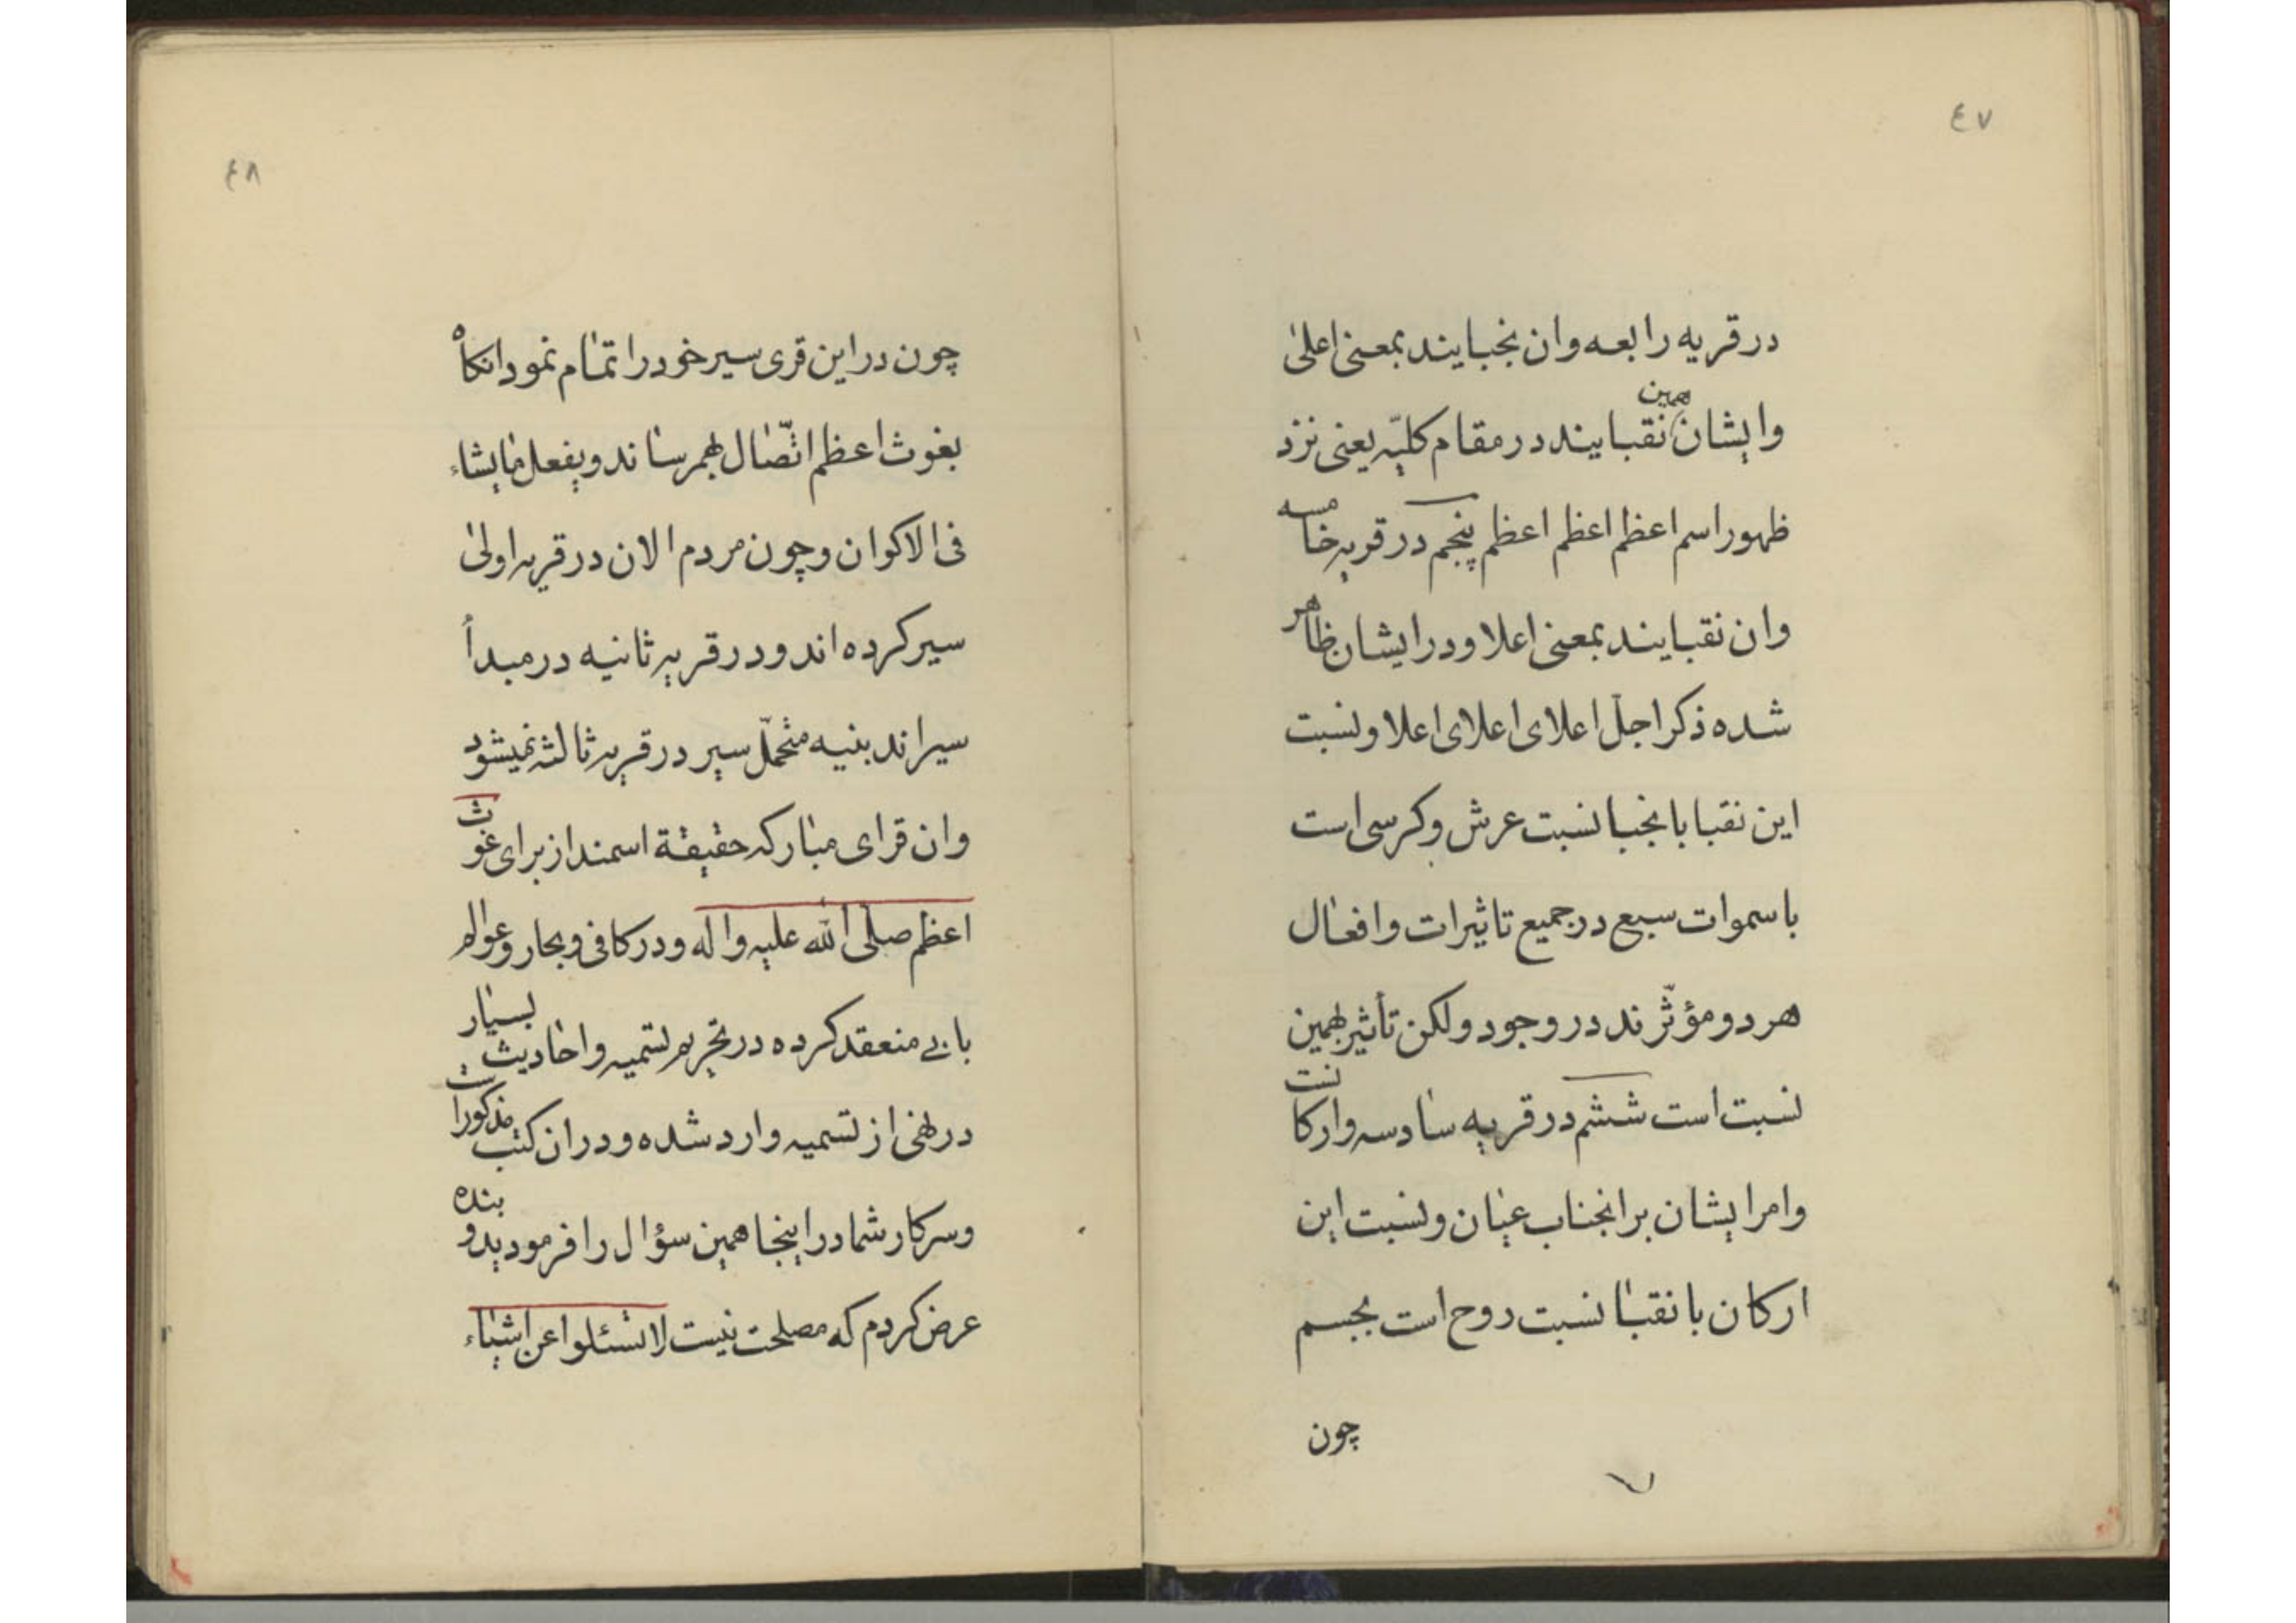 ٤٧
در قریه رابعه وان نجبایند بمعنی اعلیٰ
وایشان همین نقبایند در مقام کلیّه یعنی نزد
ظهور اسم اعظم اعظم اعظم پنجم در قریه خامسه
وان نقبایند بمعنی اعلا و در ایشان ظاهر
شده ذکر اجلّ اعلای اعلای اعلا و نسبت
این نقبا با نجبا نسبت عرش و کرسی است
با سموات سبع در جمیع تاثیرات و افعال
هر دو مؤثّرند در وجود ولکن تأثیر بهمین
نسبت است ششم در قریه سادسه وارکانست
وامر ایشان بر انجناب عیان و نسبت این
ارکان با نقبا نسبت روح است بجسم
چون
٤٨
چون در این قری سیر خود را تمام نمود انکاه
بغوث اعظم اتّصال بهمرساند و یفعل ما یشاء
فی الاکوان و چون مردم الان در قریه اولیٰ
سیر کرده اند و در قریه ثانیه در مبدأ
سیراند بنیه متحمّل سیر در قریه ثالثه نمیشود
وان قرای مبارکه حقیقة اسمند از برای غوث
اعظم صلی الله علیه واله و در کافی و بحار و عوالم
بابی منعقد کرده در تحریم تسمیه و احادیث بسیار
در نهی از تسمیه وارد شده و در ان کتب مذکور است
و سرکار شما در اینجا همین سؤال را فرمودید و بنده
عرض کردم که مصلحت نیست لا تسئلوا عن اشیاء